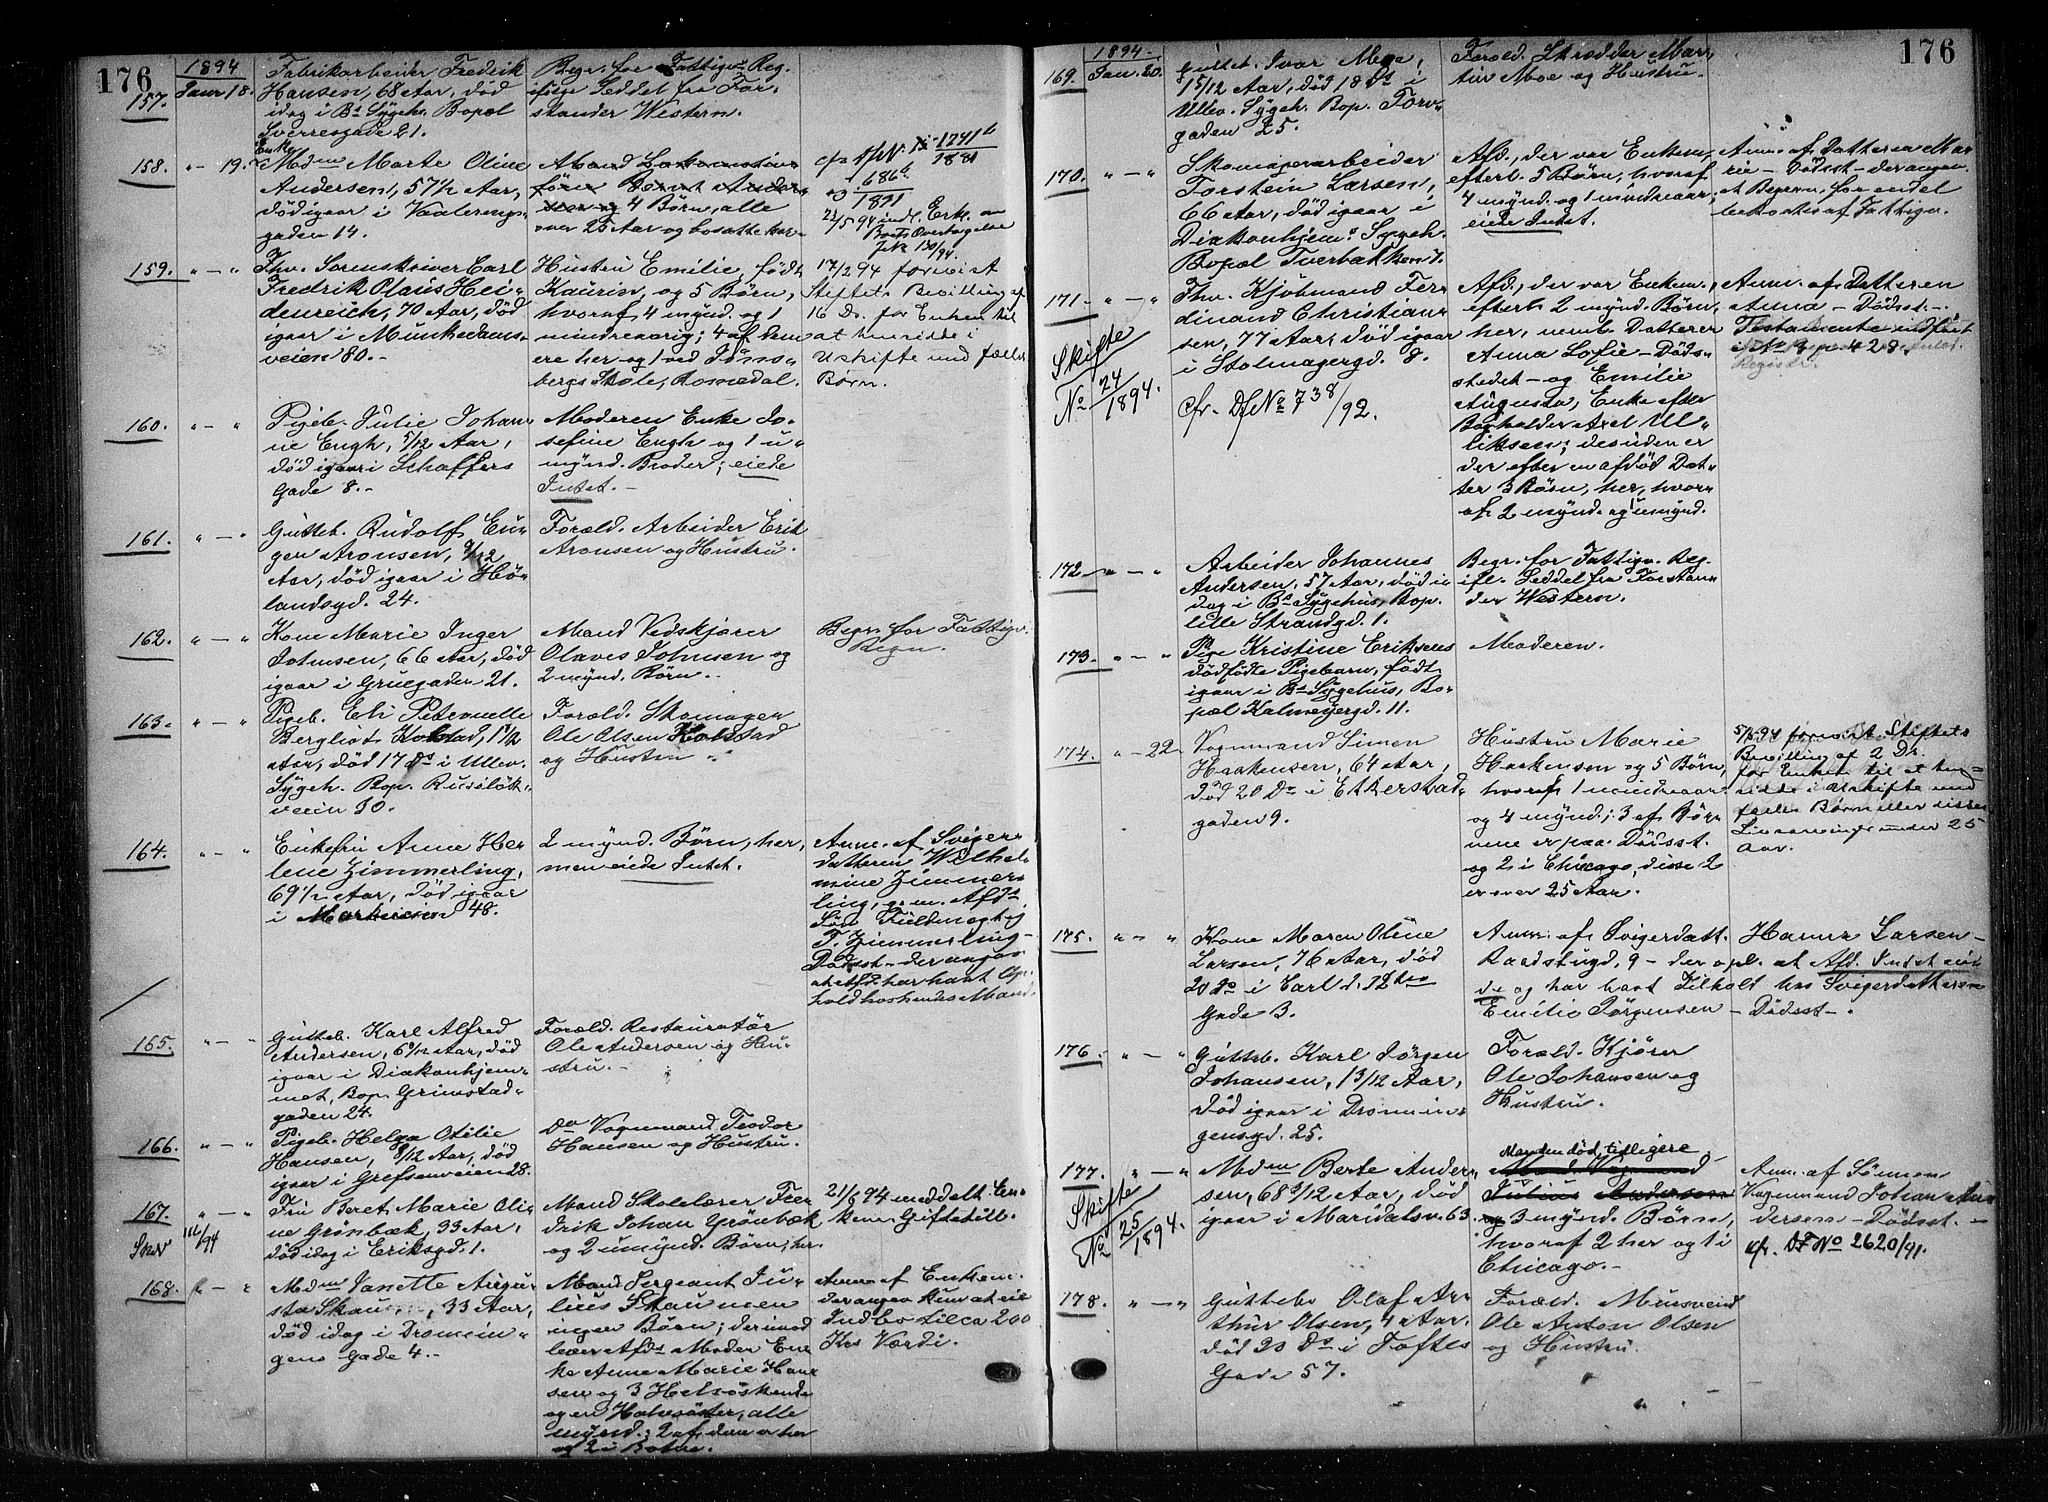 176
1894
157. Janr 18.
Fabrikarbeider Fredrik
Hansen, 68 Aar, död
idag i Bs Sygeh. Bopæl
Sverresgade 21.
Begr. for Fattigv. Reg.
ifølge Seddel fra For-
stander Western.
158. " - 19.
Enke
Mdm Marte Oline
Andersen, 57 1/2 Aar,
död igaar i Vaalereng-
gaden 14.
Mand Lokomotiv-
förer Bernt Ander-
sen og 4 Börn, alle
over 25 Aar og bosatte her.
1741
1881
og 686
1891
159. " - "
Fhv. Sorenskriver Carl
Fredrik Olaus Hei-
denreich, 70 Aar, död
igaar i Munkedams-
veien 80.-
Hustru Emilie, født
Kaurin, og 5 Börn,
hvoraf 4 mynd. og 1
mindreaarig; 4 af dem
ere her og 1 ved Jöns-
bergs Skole, Romedal.
17/2 94 forevist
Stiftets Bevilling af
16 Ds. for Enken til
at hensidde i
Uskifte med fælles
Börn.
160. " - "
Pigeb. Julie Johan-
ne Engh, 5/12 Aar,
död igaar i Schaffers
Gade 8.-
Moderen Enke Jo-
sefine Engh og 1 u-
mynd. Broder; eiede
Intet.-
161. " - "
Gutteb. Rudolf Eu-
gen Aronsen, 9/12
Aar, död igaar i Hö-
landsgd. 24.
Foræld. Arbeider Erik
Aronsen og Hustru.
162. " - "
Kone Marie Inger
Johnsen, 66 Aar, död
igaar i Gruegaden 21.
Mand Vedskjærer
Olaves Johnsen og
2 mynd. Börn.
Begr. for Fattigv.
Regn.
163. " - "
Pigeb. Eli Petronelle
Bergliot Kolstad, 1 1/12
Aar, död 17 Ds i Ullev.
Sygeh. Bop. Ruselök-
veien 30.
Foræld. Skomager
Ole Olsen Kolstad
og Hustru
164. " - "
Enkefru Anne He-
lene Zimmerling,
69 1/2 Aar, död igaar
i Markveien 48.
2 mynd. Börn, her,
men eiede Intet.
Anm. af Sviger-
datteren Wilhel-
mine Zimmer-
ling, g. m. Afds
Sön Fuldmægtig
F. Zimmerling -
Dödsst - der angav
at Afd. har havt Op-
hold hos hendes Mand.
165. " - "
Gutteb. Karl Alfred
Andersen, 6 9/12 Aar, död
igaar i Diakonhjem-
met, Bop. Grimstad-
gaden 24.
Foræld. Restauratör
Ole Andersen og Hu-
stru.-
166. " - "
Pigeb. Helga Otilie
Hansen, 8/12 Aar, död
igaar i Grefsenveien 28.
Do Vognmand Teodor
Hansen og Hustru.
167. " - "
Fru Beret Marie Oli-
ne Grönbæk, 33 Aar,
död idag i Eriksgd. 1.
Mand Skolelærer Fre-
drik Johan Grönbæk
og 2 umynd. Börn, her.
21/6 94 meddelt En-
kem. Giftetill.
168. " - "
Mdm Janette Augu-
sta Skau, 33 Aar,
död idag i Dronnin-
gens Gade 4.-
Mand Sergeant Ju-
lius Skau men
ingen Börn; derimod
lever Afds Moder En-
ke Anne Marie Han-
sen og 3 Helsöskende
og en Halvsöster, alle
mynd.; 2 af dem er her
og 2 i Boston.
Anm. af Enkem.
der angav Kun at eie
Indbo circa 200
Krs Værdi.
176
1894
169. Jan. 20.
Gutteb. Ivar Moe,
1 5/12 Aar, död 18 Ds i
Ullev. Sygeh. Bop. Torv-
gaden 25.
Foræld. Skrædder Mar-
tin Moe og Hustru.
170. " - "
Skomagerarbeider
Torstein Larsen,
66 Aar, död igaar i
Diakonhjems Sygeh.
Bopæl Tverbakken 7.
Afd., der var Enkem,
efterl. 5 Börn, hvoraf
4 mynd. og 1 mindreaar;
eiede Intet.
Anm. af Datteren Ma-
rie - Dödsst - der angav
at Begravn. for endel
bekostes af Fattigv.
171. " - "
Skifte
No 24/1894.
Fhv. Kjöbmand Fer-
dinand Christian-
sen, 77 Aar, död igaar
i Stolmagergd. 8.
cfr. DfNo 738/92.
Afd., der var Enkem.,
efterl. 2 mynd. Börn,
her, neml. Datteren
Anna Sofie - Död-
stedet - og Emilie
Augusta, Enke efter
Bogholder Axel Ul-
riksen; desuden er
der efter en afdöd Dat-
ter 3 Börn, her, hvor-
af 2 mynd. og 1 umynd.
Anm. af Datteren
Anna - Dödsst -.
Testamente indført
i No 3 p. 428.
172. " - "
Arbeider Johannes
Andersen, 57 Aar, död i-
dag i Bs Sygehus, Bop.
lille Strandgd. 1.
Begr. for Fattigv. Reg.
ifl. Seddel fra Forstan-
der Western.
173. " - "
Pige Kristine Eriksens
dödfödte Pigebarn, födt
igaar i Bs Sygehus, Bo-
pæl Kalmeyergd. 11.
Moderen.
174. " - 22.
Vognmand Simen
Haakensen, 64 Aar,
död 20 Ds i Etterstad-
gaden 9.
Hustru Marie
Haakensen og 5 Börn,
hvoraf 1 mindreaar.
og 4 mynd.; 3 af Bör-
nene er paa Dödsst.
og 2 i Chicago, disse 2
er over 25 Aar.
5/5 94 forevist Stiftets
Bevilling af 2 Ds.
for Enken til at hen-
sidde i Uskifte med
fælles Börn eller disses
Livsarvinger under 25
Aar.
175. " - "
Kone Maren Oline
Larsen, 76 Aar, död
20 Ds i Carl d. 12tes
Gade 3.
Anm. af Svigerdatt. Hanna Larsen -
Raadstugd. 9 - der opl. at Afd. Intet eie-
de og har havt Tilhold hos Svigerdatteren
Emilie Jörgensen - Dödsst -.
176. " - "
Gutteb. Karl Jörgen
Johansen, 1 3/12 Aar,
död igaar i Dronnin-
gensgd. 25.
Foræld. Kjörer
Ole Johansen og
Hustru.
177. " - "
Skifte
No 25/1894.
Mdm Berte Ander-
sen, 68 9/12 Aar, död
igaar i Maridalsv. 63.
Manden död, tidligere
Mand Vognmand
Julius Andersen
og 3 mynd. Börn,
hvoraf 2 her og 1 i
Chicago.-
Anm. af Sönnen
Vognmand Johan An-
dersen - Dödsst. -
cfr. DfNo 2620/91.
178. " - "
Guttebs Olaf Ar-
thur Olsen, 4 Aar,
död 20 Ds i Toftes
Gade 57.
Foræld. Mursvend
Ole Anton Olsen
og Hustru.